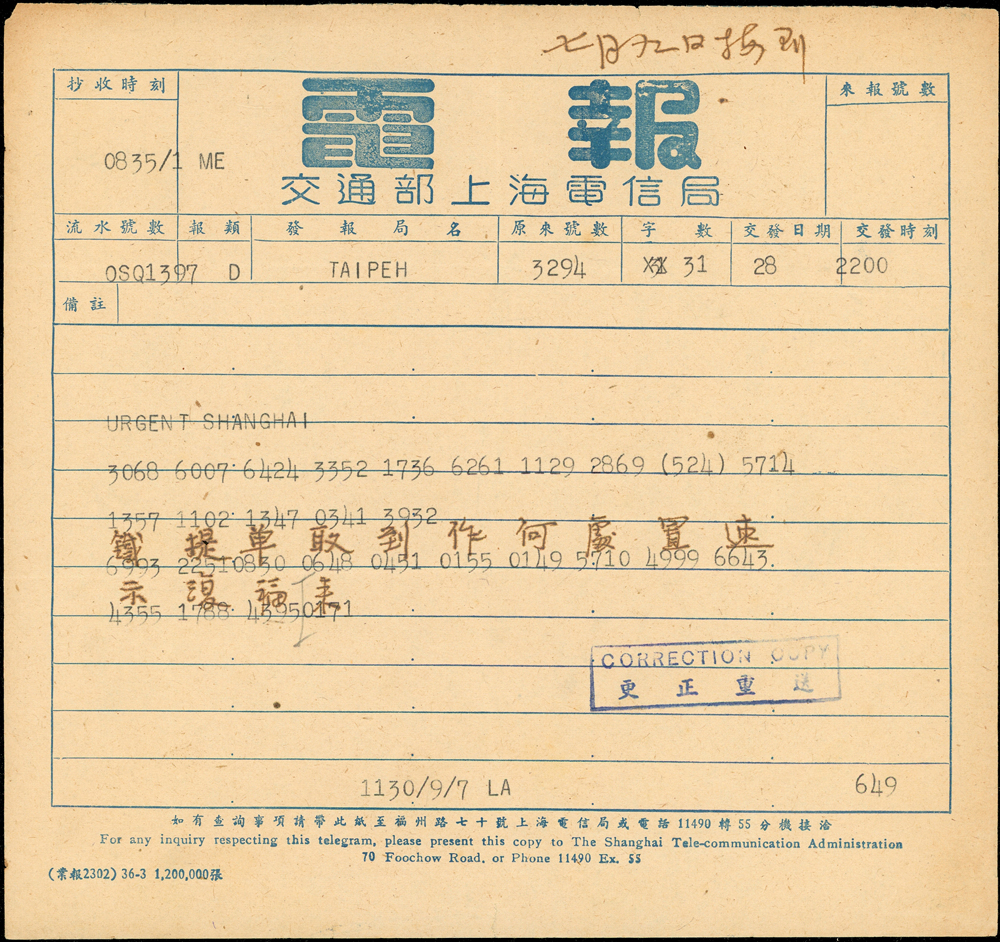 七月九日接到
抄收時刻
來報號數
電報
0835/1 ME
交通部上海電信局
流水號數 報類 發報局名 原來號數 字數 交發日期 交發時刻
OSQ1397 D TAIPEH 3294 31 28 2200
備註
URGENT SHANGHAI
3068 6007 6424 3352 1736 6261 1129 2869 (524) 5714
1357 1102 1347 0341 3932
鐵提單取到作何處置速
6993 2251 0830 0648 0451 0155 0149 5710 4999 6643
示復福來
4355 1788 43950171
CORRECTION COPY
更正重送
1130/9/7 LA 649
如有查詢事項請帶此紙至福州路七十號上海電信局或電話11490轉55分機接洽
For any inquiry respecting this telegram, please present this copy to The Shanghai Tele-communication Administration
70 Foochow Road. or Phone 11490 Ex. 55
(業報2302) 36-3 1,200,000張